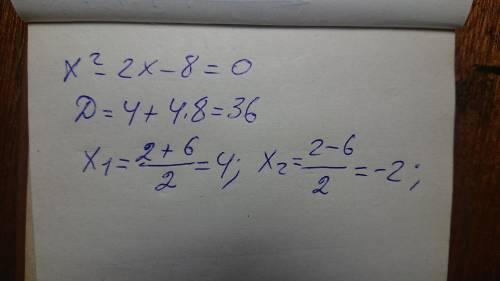 x² - 2x - 8 = 0
Д = 4 + 4·8 = 36
x₁ = (2+6)/2 = 4; x₂ = (2-6)/2 = -2;